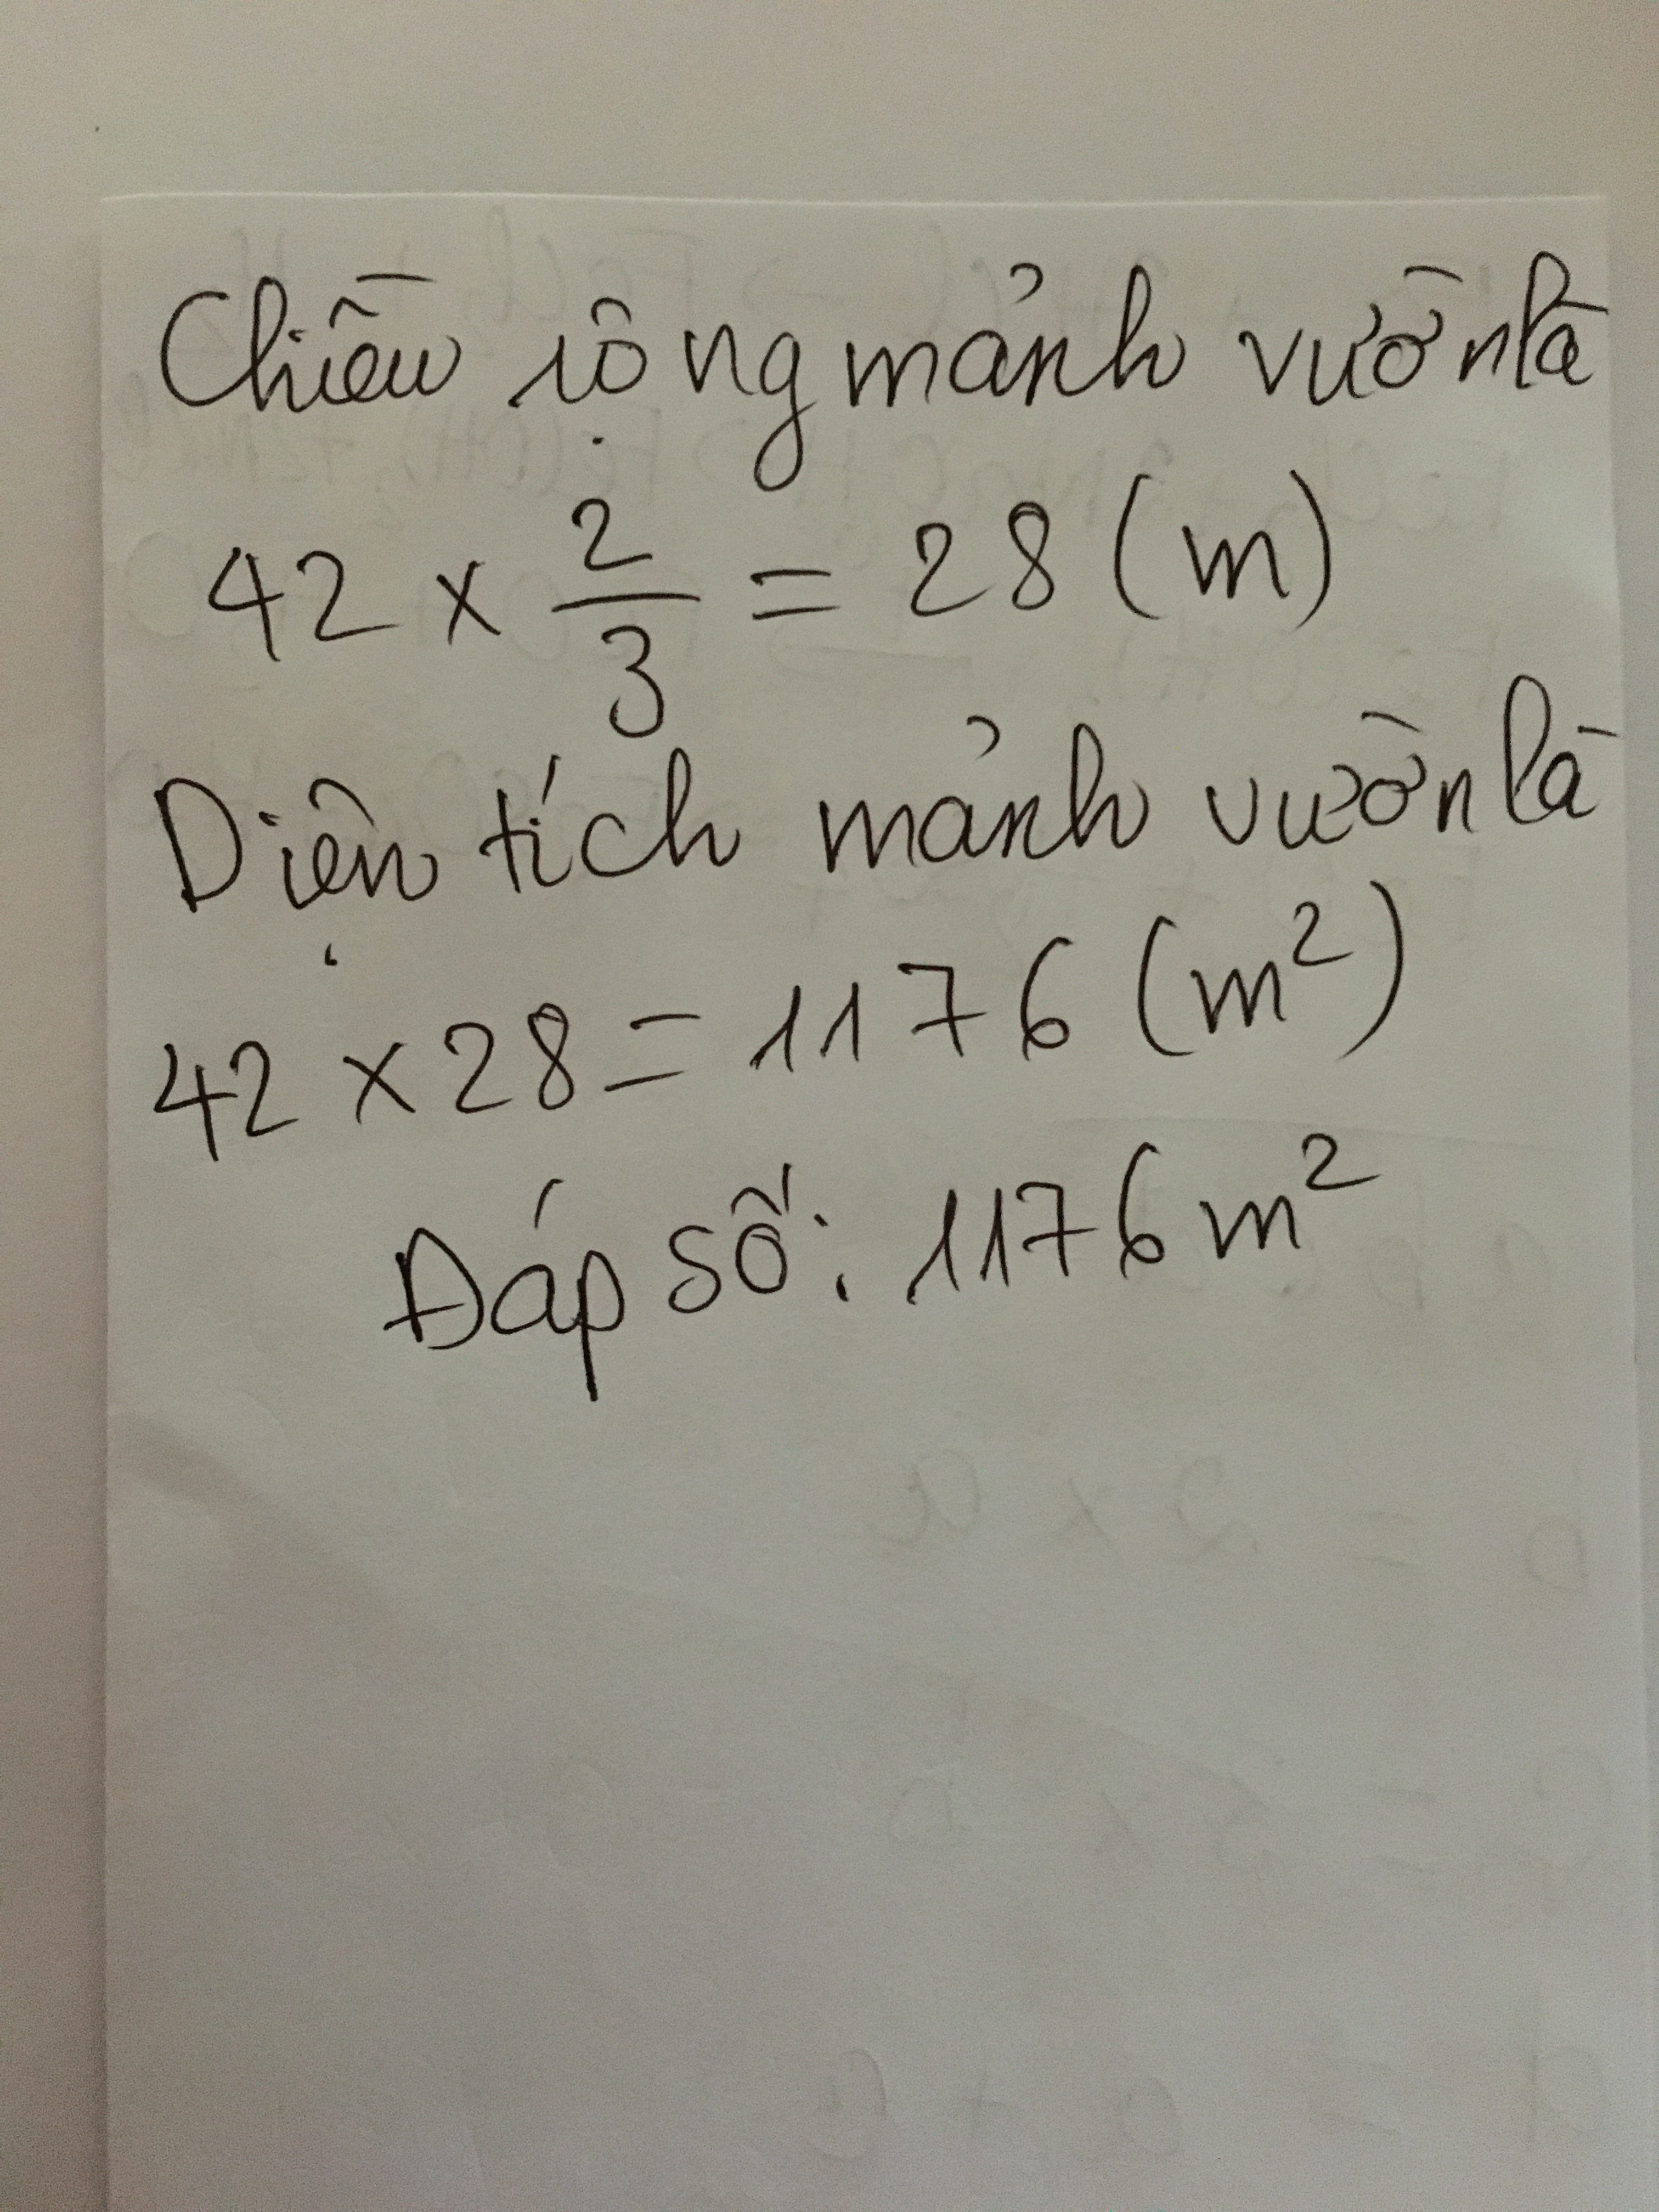 Chiều rộng mảnh vườn là
42 × 2/3 = 28 (m)
Diện tích mảnh vườn là
42 × 28 = 1176 (m²)
Đáp số: 1176 m²